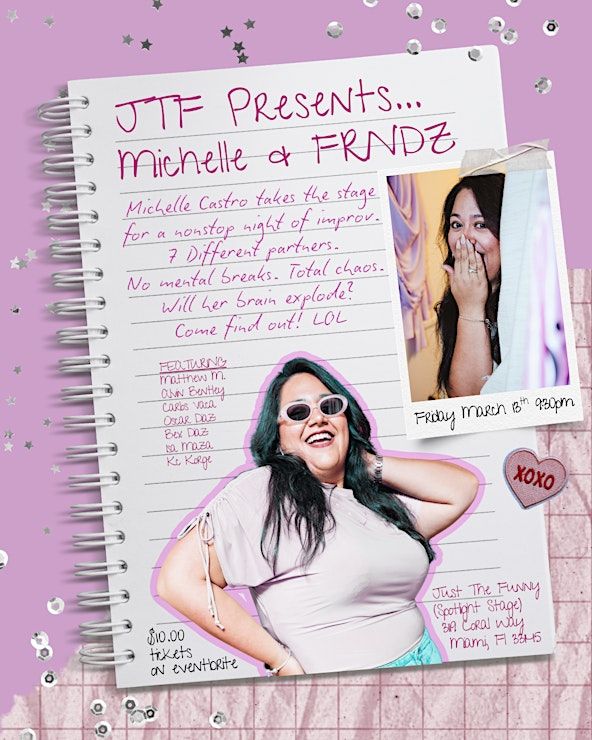 JTF Presents...
Michelle & FRNDZ
Michelle Castro takes the stage
for a nonstop night of improv.
7 Different partners.
No mental breaks. Total chaos.
Will her brain explode?
Come find out! LOL
FEATURING
Matthew M.
Alvin Bentley
Carlos Vaca
Oscar Daz
Bex Daz
Isa Maza
Kc Korge
Friday March 13th 930pm
XOXO
Just The Funny
(Spotlight Stage)
3119 Coral Way
Miami, Fl 33145
$10.00
tickets
on eventbrite